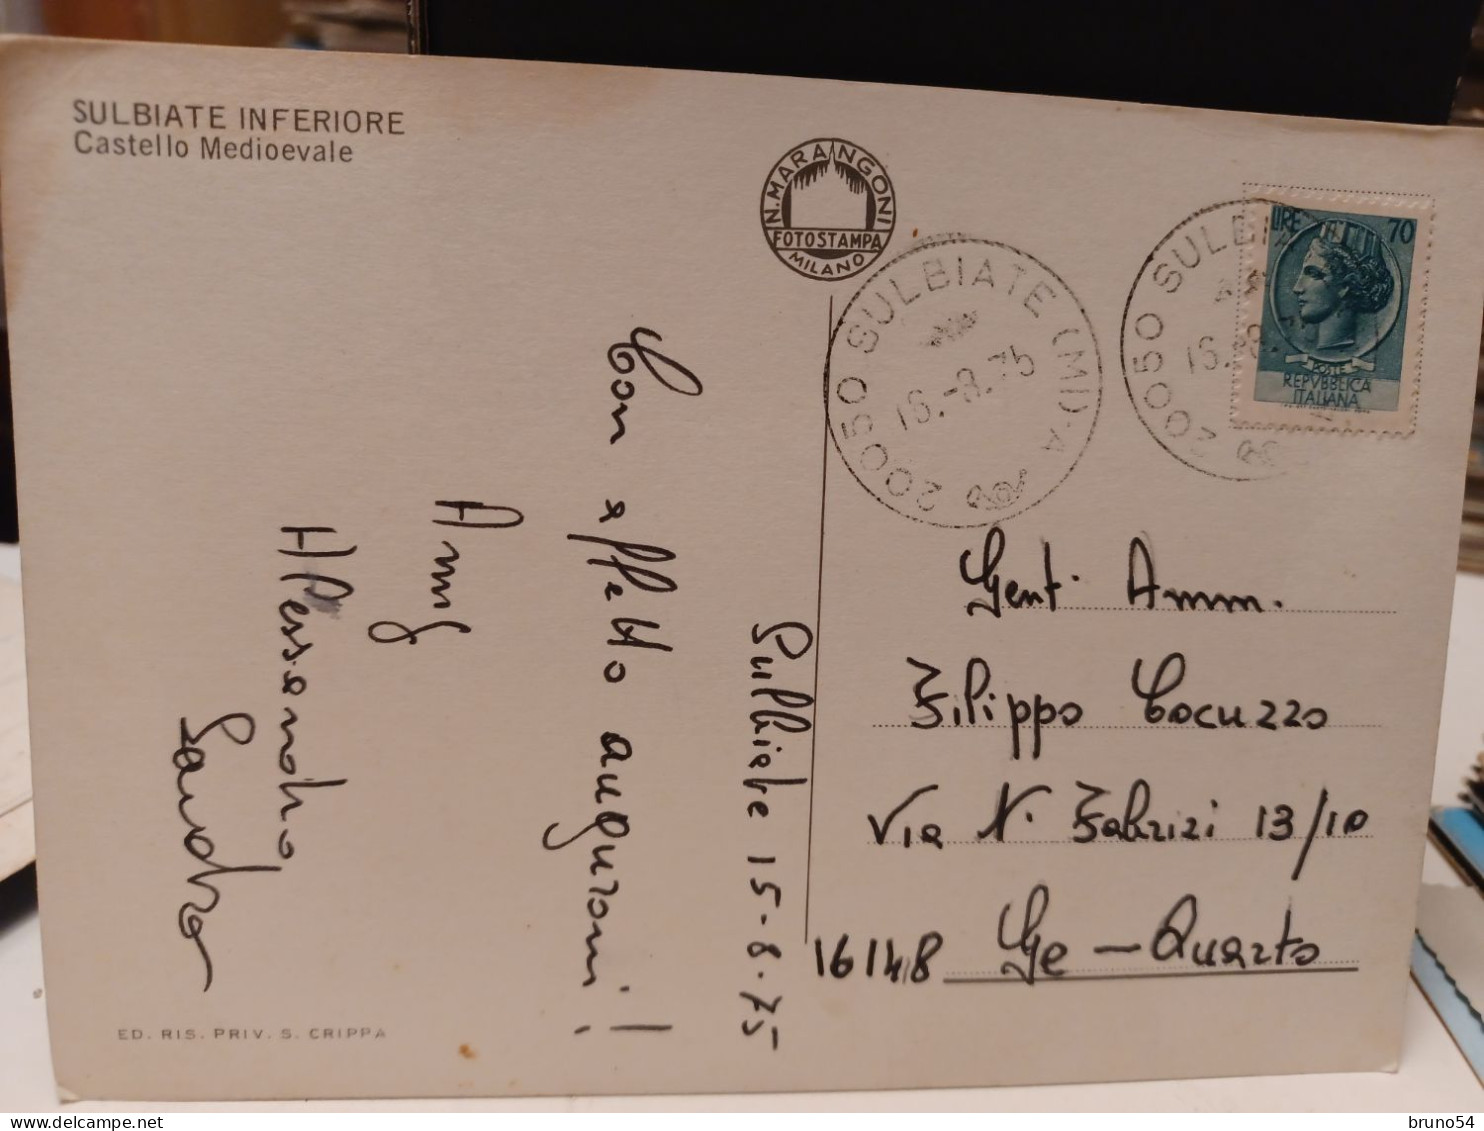 SULBIATE INFERIORE
Castello Medioevale
N. MARANGONI
FOTOSTAMPA
MILANO
20050 SULBIATE (MI) - A
16.-8.75
20050 SULBIATE
16.-8.
LIRE 70
POSTE
REPVBBLICA
ITALIANA
Sulbiate 15-8-75
Con affetto auguroni!
Alessandro
Sandra
Gent. Amm.
Filippo Cocuzzo
Via N. Fabrizi 13/10
16148 Ge - Quarto
ED. RIS. PRIV. S. CRIPPA
bruno54